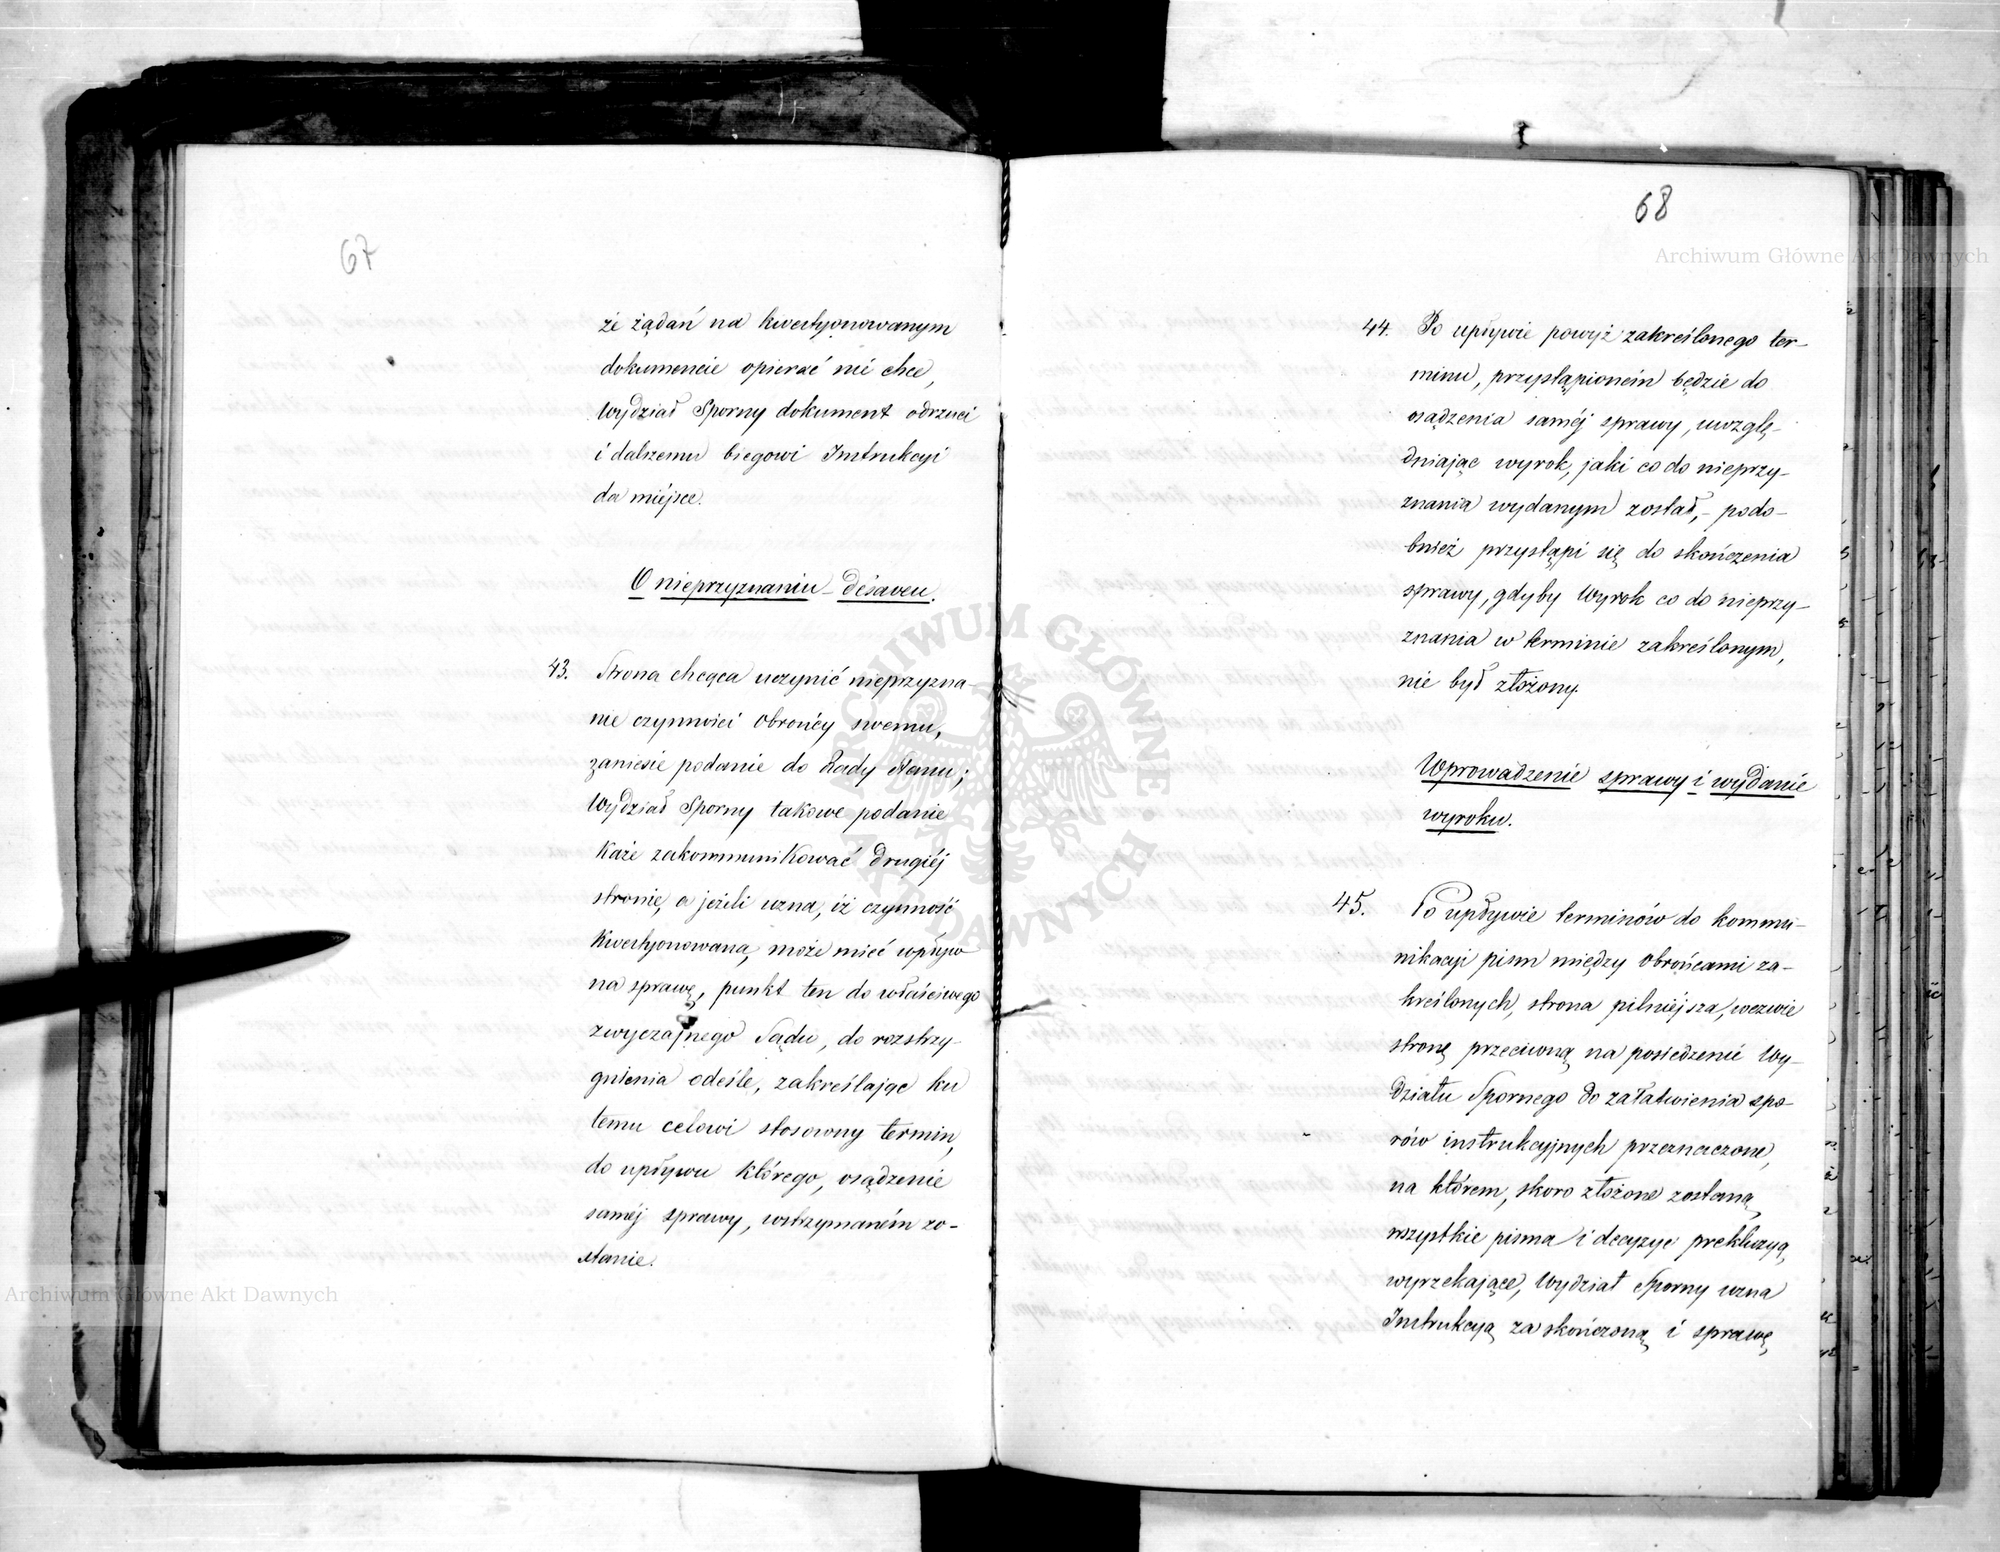 67
że żądań na kwestyonowanym
dokumencie opierać nie chce,
Wydział Sporny dokument odrzuci
i dalszemu biegowi Instrukcyi
da miejsce.
O nieprzyznaniu – Désaveu.
43. Strona chcąca uczynić nieprzyzna-
nie czynności obrońcy swemu,
zaniesie podanie do Rady Stanu;
Wydział Sporny takowe podanie
każe zakommunikować drugiéj
stronie, a jeżeli uzna, iż czynność
kwestyonowana, może mieć wpływ
na sprawę, punkt ten do właściwego
zwyczajnego Sądu, do rozstrzy-
gnienia odeśle, zakreślając ku
temu celowi stosowny termin,
do upływu którego, osądzenie
saméj sprawy, wstrzymaném zo-
stanie.
68
44. Po upływie powyż zakreślonego ter-
minu, przystąpioném będzie do
osądzenia saméj sprawy, uwzglę-
dniając wyrok, jaki co do nieprzy-
znania wydanym został, – podo-
bnież przystąpi się do skończenia
sprawy, gdyby Wyrok co do nieprzy-
znania w terminie zakreślonym,
nie był złożony.
Wprowadzenie sprawy i wydanie
wyroku.
45. Po upływie terminów do kommu-
nikacyi pism między obrońcami za-
kreślonych, strona pilniejsza, wezwie
stronę przeciwną na posiedzenie Wy-
działu Spornego do załatwienia spo-
rów instrukcyjnych przeznaczone,
na którem, skoro złożone zostaną
wszystkie pisma i decyzye prekluzyą,
wyrzekające, Wydział Sporny uzna
Instrukcyą za skończoną i sprawę,
Archiwum Główne Akt Dawnych
Archiwum Główne Akt Dawnych
ARCHIWUM GŁÓWNE AKT DAWNYCH